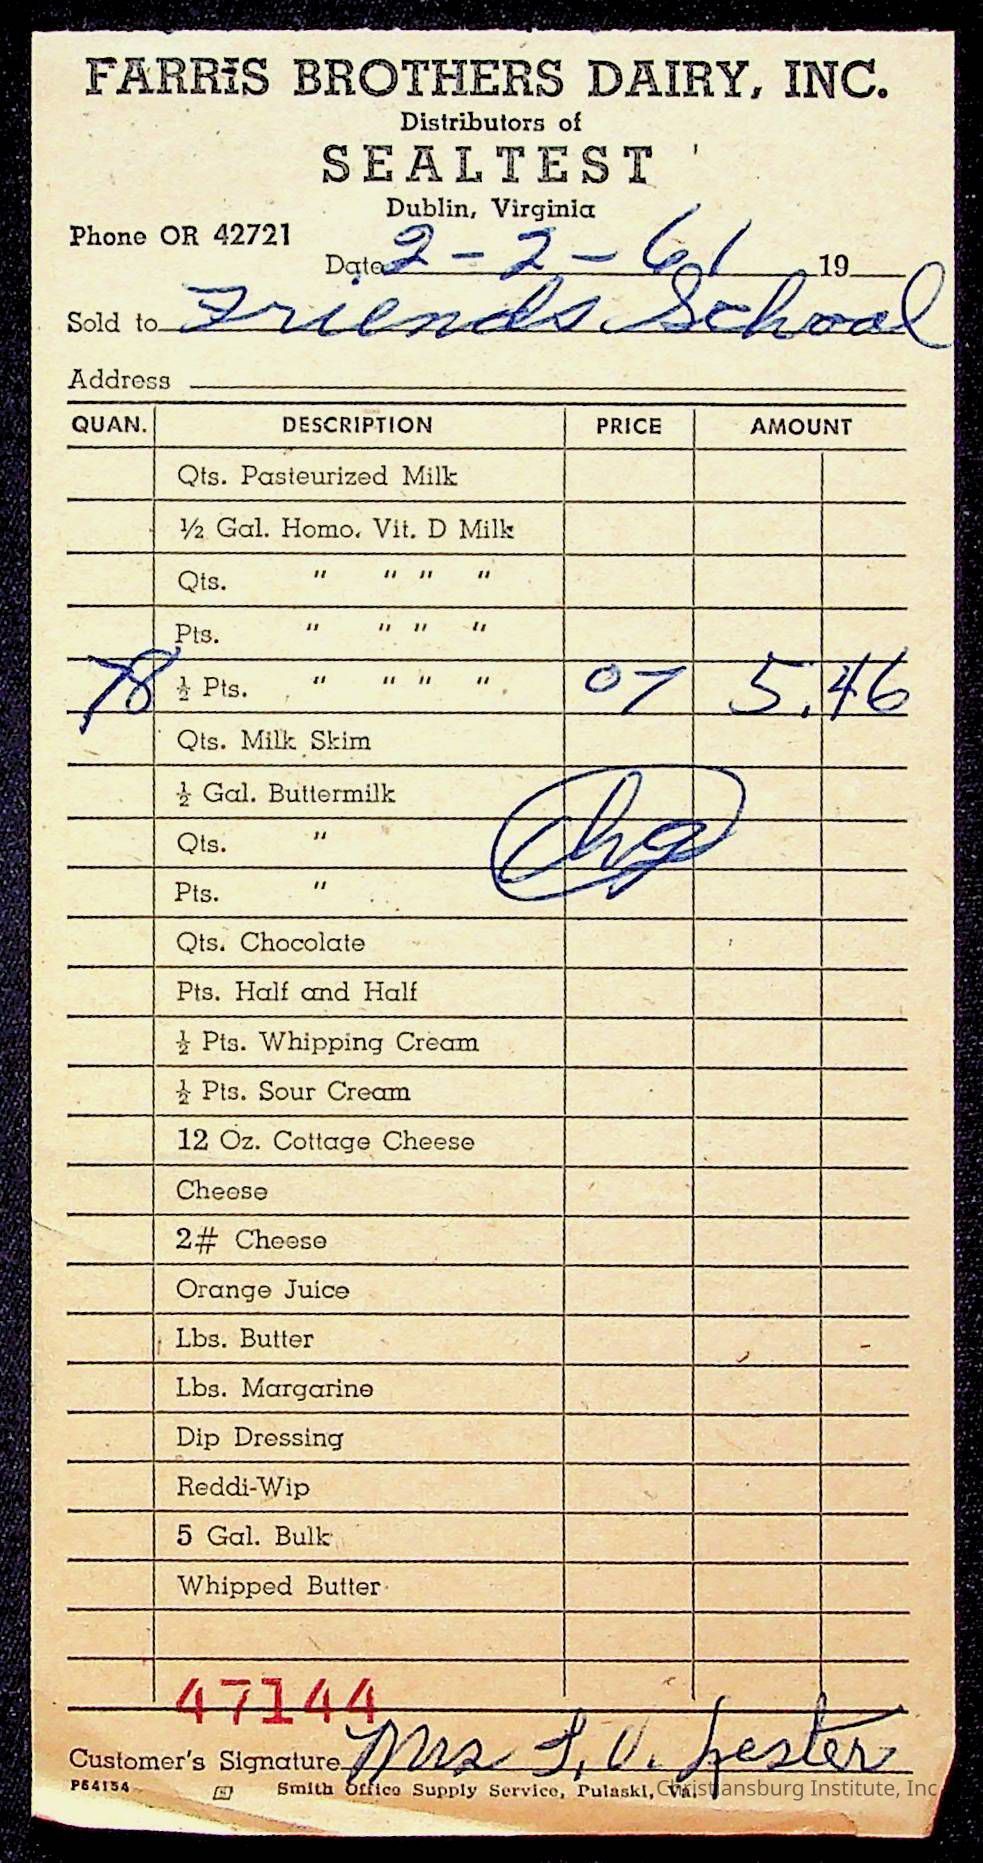 FARRIS BROTHERS DAIRY, INC.
Distributors of
SEALTEST
Dublin, Virginia
Phone OR 42721
Date 2-2-61 19
Sold to Friends School
Address
QUAN. DESCRIPTION PRICE AMOUNT
Qts. Pasteurized Milk
½ Gal. Homo. Vit. D Milk
Qts. " " " "
Pts. " " " "
78 ½ Pts. " " " " 07 5.46
Qts. Milk Skim
½ Gal. Buttermilk
Qts. "
chg
Pts. "
Qts. Chocolate
Pts. Half and Half
½ Pts. Whipping Cream
½ Pts. Sour Cream
12 Oz. Cottage Cheese
Cheese
2# Cheese
Orange Juice
Lbs. Butter
Lbs. Margarine
Dip Dressing
Reddi-Wip
5 Gal. Bulk
Whipped Butter
47144
Customer's Signature Mrs. Lester
P64154 Smith Office Supply Service, Pulaski, Va.
Christiansburg Institute, Inc